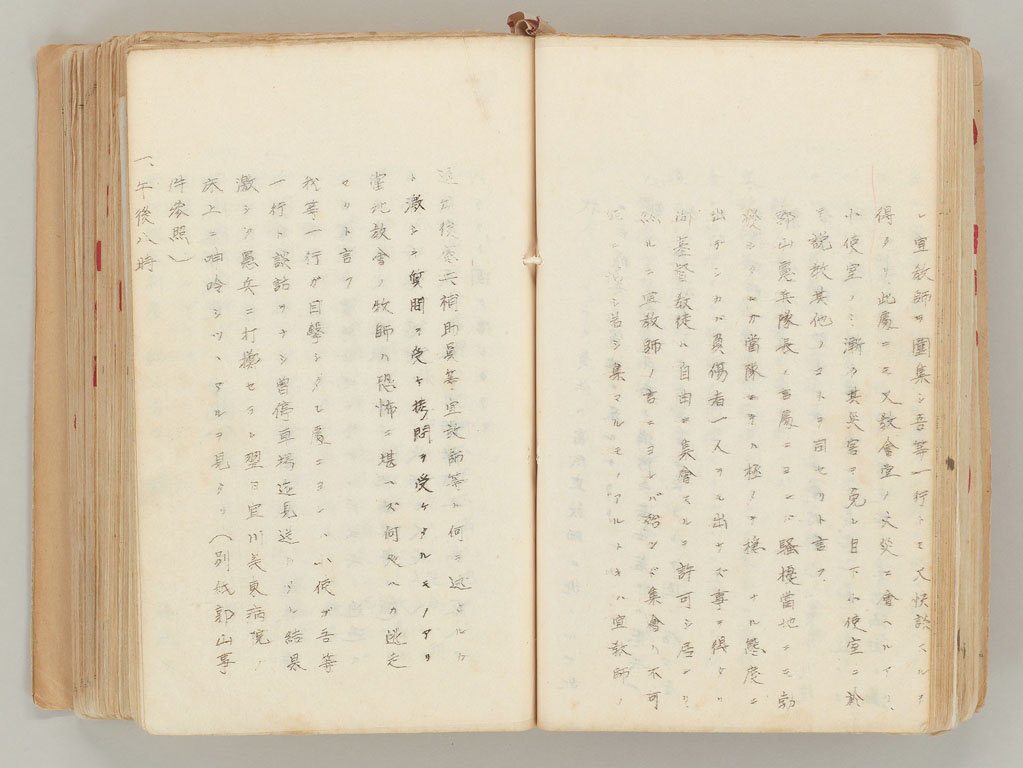 シ宣教師ヲ圍集シ吾等一行トモ又快談スルヲ
得タリ此處ニモ又教會堂ノ火災ニ會ヘルアリ、
小使室ノミ漸ク其災害ヲ免レ目下小使室ニ於
テ説教其他ノコトヲ司セリト言フ
郭山憲兵隊長ノ言處ニヨレバ騒擾當地ニモ勃
發シタルガ當隊ニテハ極メテ穏 ナル態度ニ
出デシガ負傷者一人ヲモ出サズ事ヲ得タリ
尚基督教徒ハ自由ニ集會スルヲ許可シ居レリ
然ルニ宣教師ノ言ニヨレバ殆ンド集會ハ不可
ニシテ シ若シ集マルモノアルトキハ宣教師ノ
後憲兵補助員等宣教師等ト何ニ述ベタルカ
ト激シキ質問ヲ受ケ拷問ヲ受ケタルモノアリ
當地教會ノ牧師ハ恐怖ニ堪ヘズ何処ヘカ逃走
セリト言フ
我等一行ガ目撃シタル處ニヨレバ小使ガ吾等
一行ト談話ヲナシ曽停車場迄見送リタル結果
激シク憲兵ニ打擲セラレ翌日宣川美東病院ノ
床上ニ呻吟シツヽアルヲ見タリ(別紙郭山事
件参照)
一、午後八時